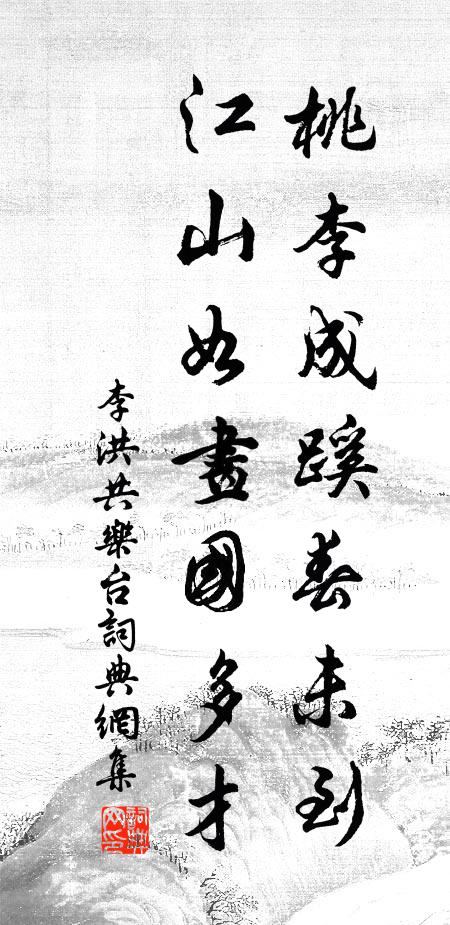 桃李成蹊春未到
江山如畫國多才
李洪共樂台詞典網集